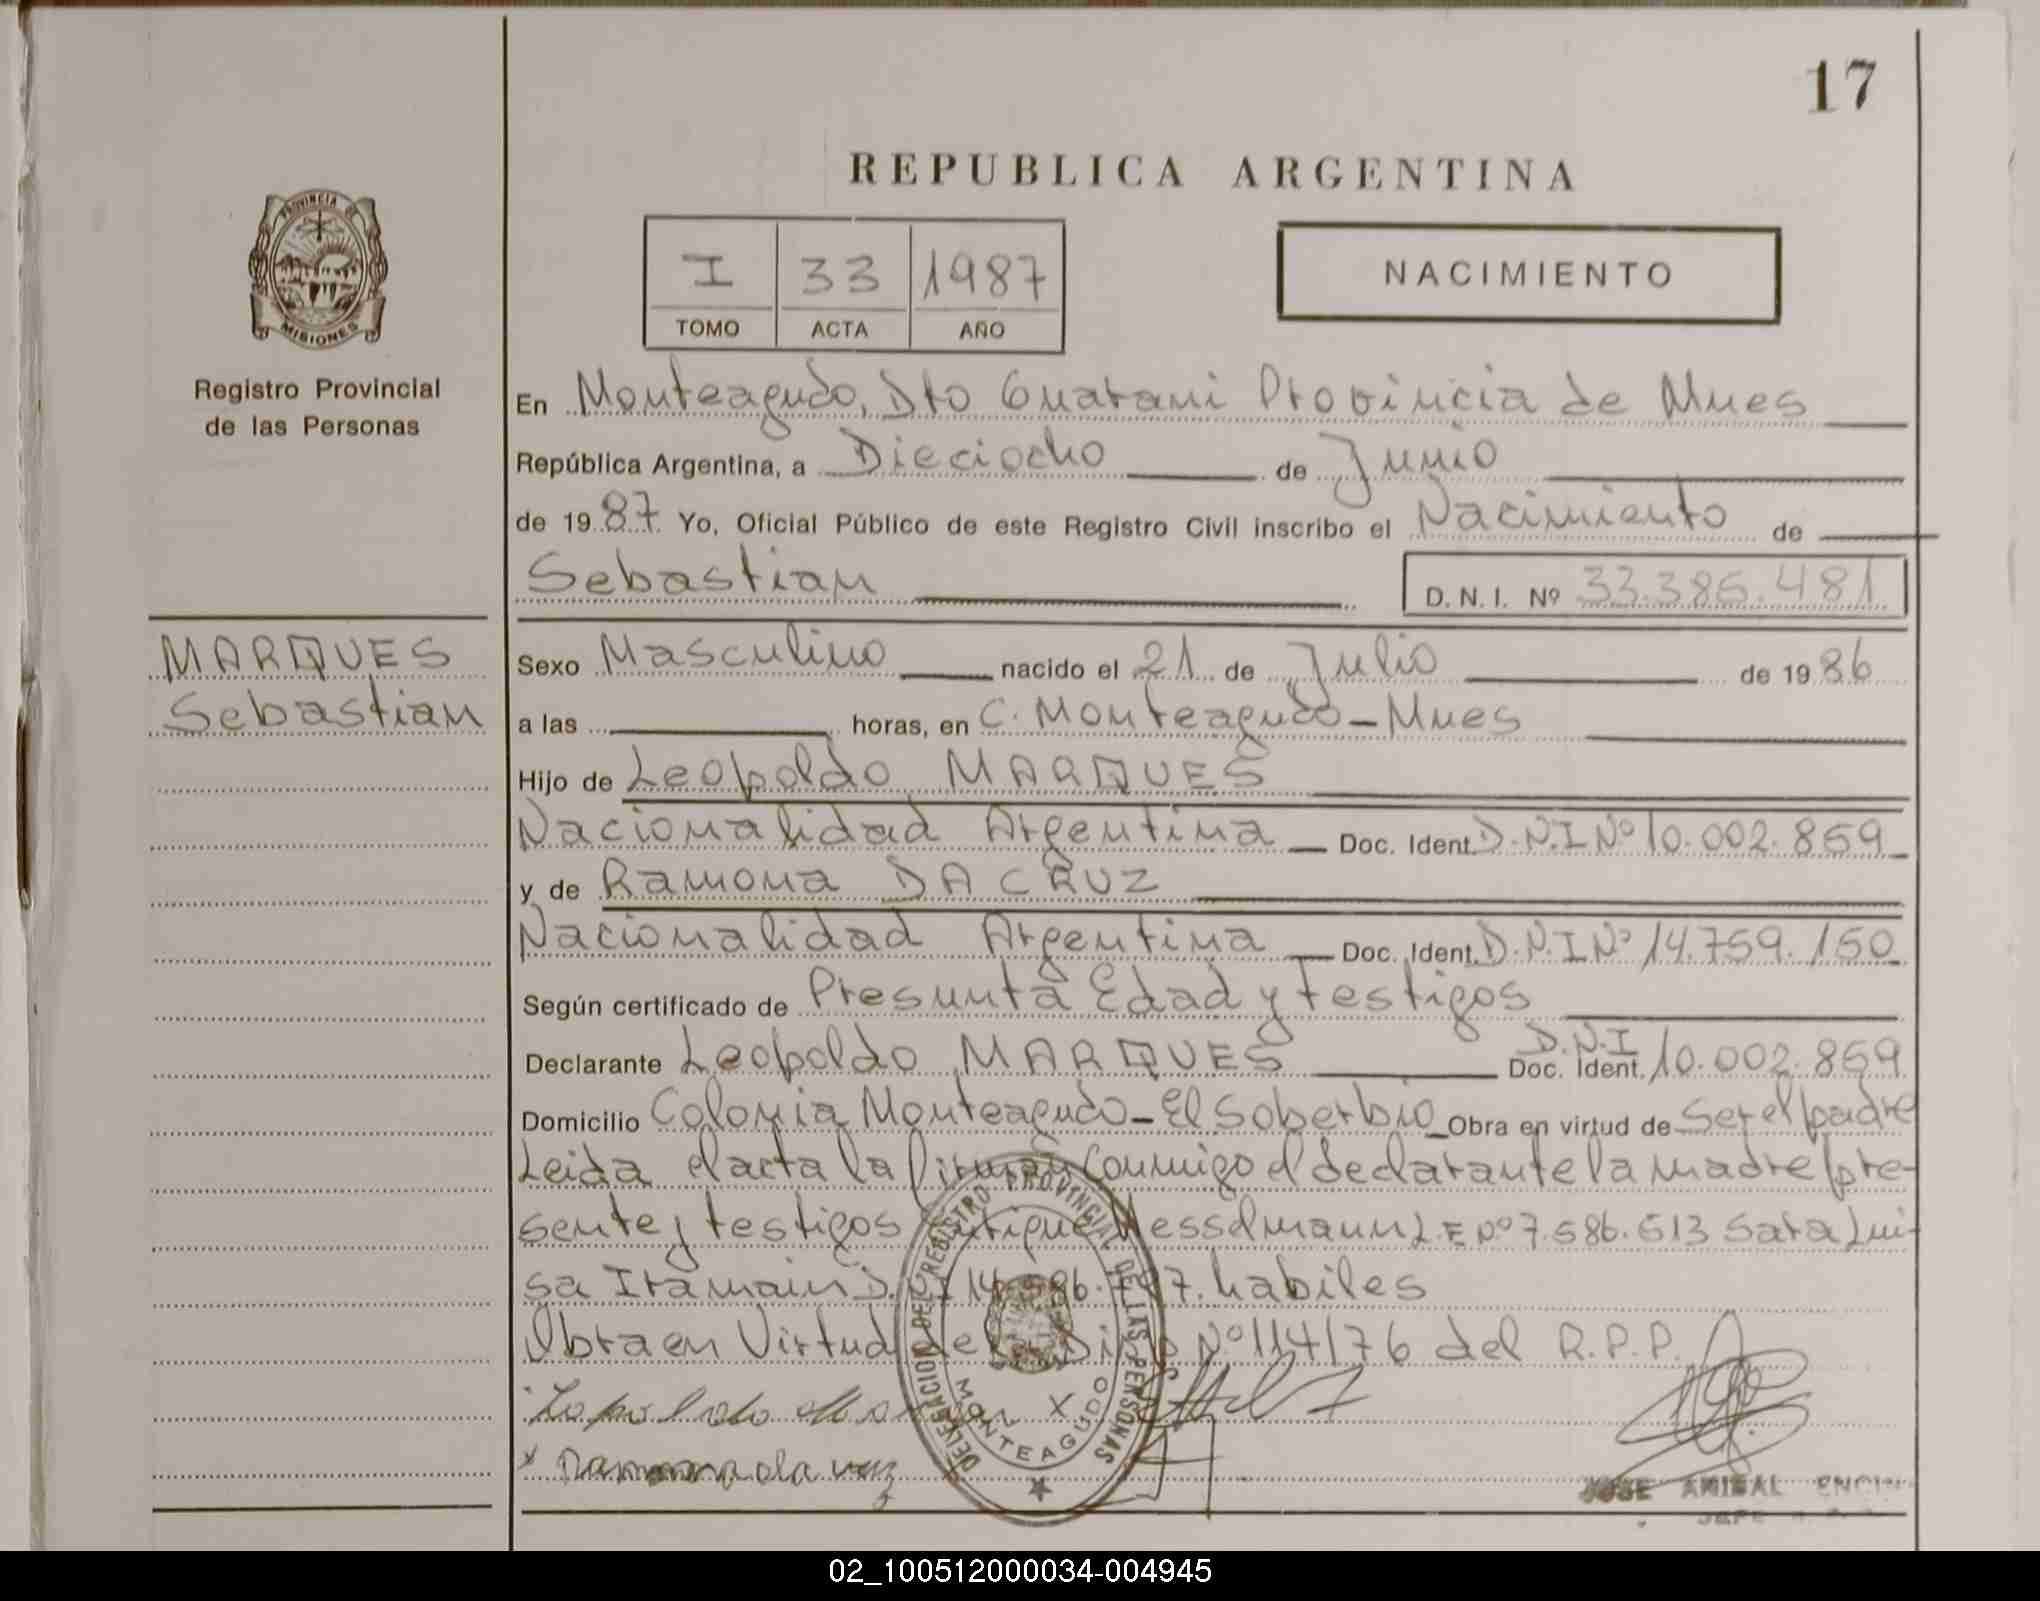 17
REPUBLICA ARGENTINA
PROVINCIA DE
MISIONES
Registro Provincial
de las Personas
I 33 1987
TOMO ACTA AÑO
NACIMIENTO
En Monteagudo, Dto Guarani Provincia de Mnes
República Argentina, a Dieciocho de Junio
de 1987. Yo, Oficial Público de este Registro Civil inscribo el Nacimiento de
Sebastian D.N.I. Nº 33.385.481
MARQUES
Sebastian
Sexo Masculino nacido el 21 de Julio de 1986
a las horas, en C. Monteagudo - Mnes
Hijo de Leopoldo MARQUES
Nacionalidad Argentina Doc. Ident. D.N.I Nº 10.002.859
y de Ramona DA CRUZ
Nacionalidad Argentina Doc. Ident. D.N.I Nº 14.759.150
Según certificado de Presunta Edad y Testigos
Declarante Leopoldo MARQUES Doc. Ident. D.N.I 10.002.859
Domicilio Colonia Monteagudo - El Soberbio Obra en virtud de Ser el padre
Leida el acta la firman Conmigo el declarante la madre pre-
sente y testigos Enrique Wesselmann L.E Nº 7.586.513 Sara Lui-
sa Itamain D.N.I 14. habiles
Obra en Virtud de Nº 114/76 del R.P.P.
DELEGACION DEL REGISTRO PROVINCIAL DE LAS PERSONAS
MONTEAGUDO
JOSE ANIBAL
JEFE
02_100512000034-004945